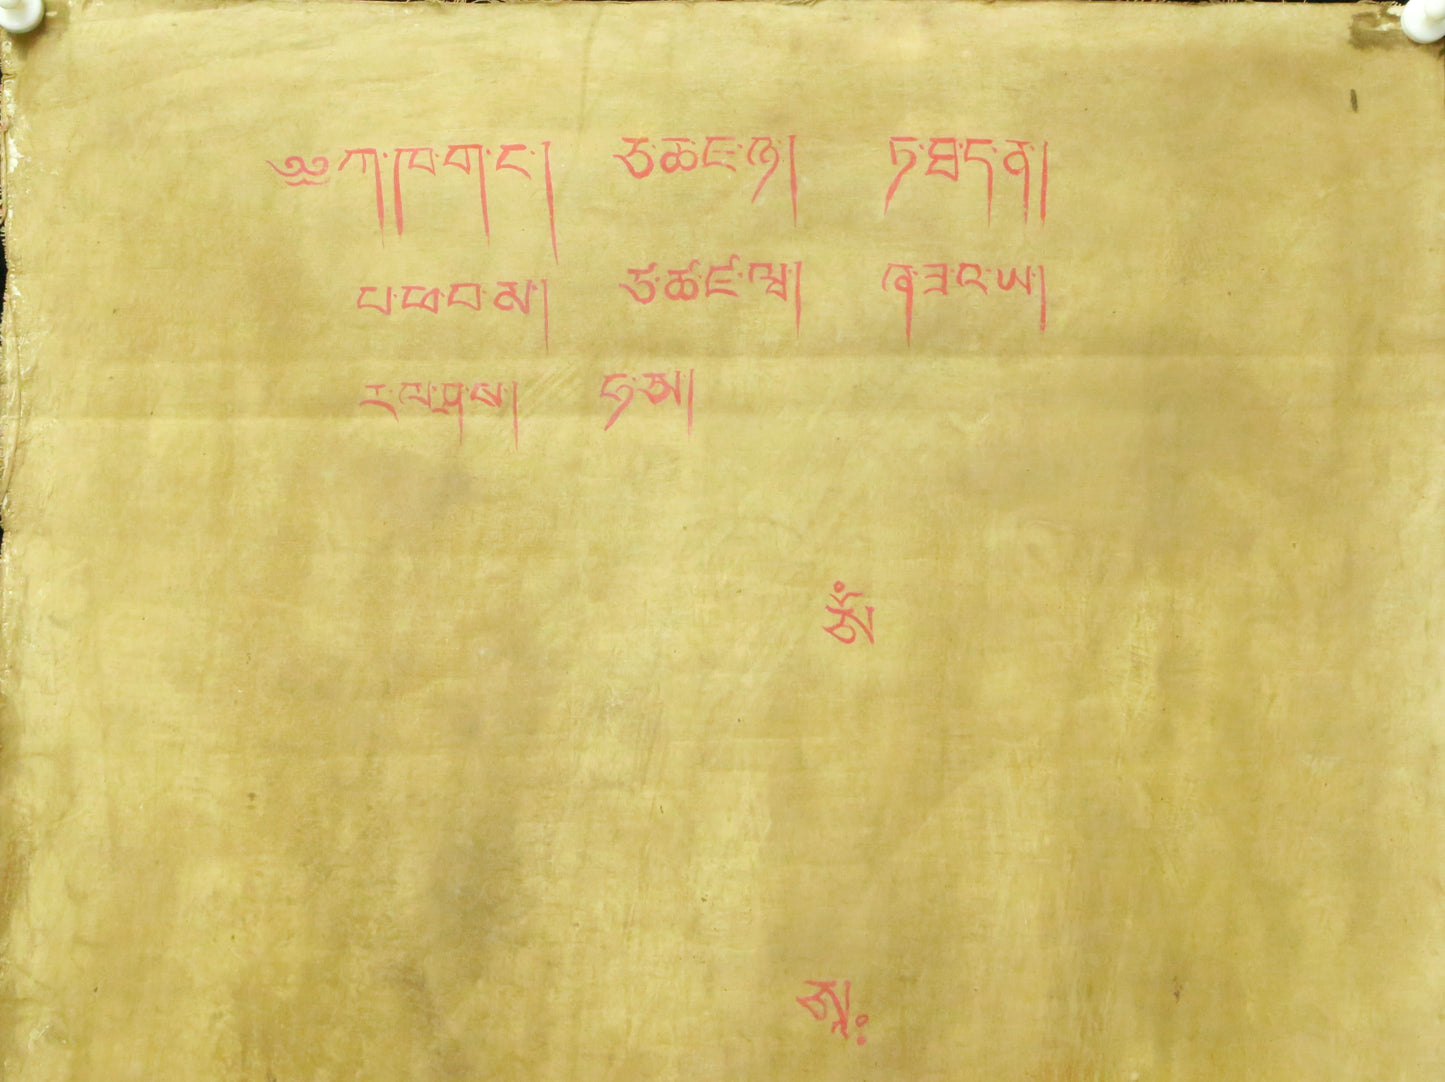 ༄༅ཀ་ཁ་ག་ང་། ཅ་ཆ་ཇ་ཉ། ཏ་ཐ་ད་ན།
པ་ཕ་བ་མ། ཙ་ཚ་ཛ་ཝ། ཞ་ཟ་འ་ཡ།
ར་ལ་ཤ་ས། ཧ་ཨ།
ཨོཾ
ཨཱཿ